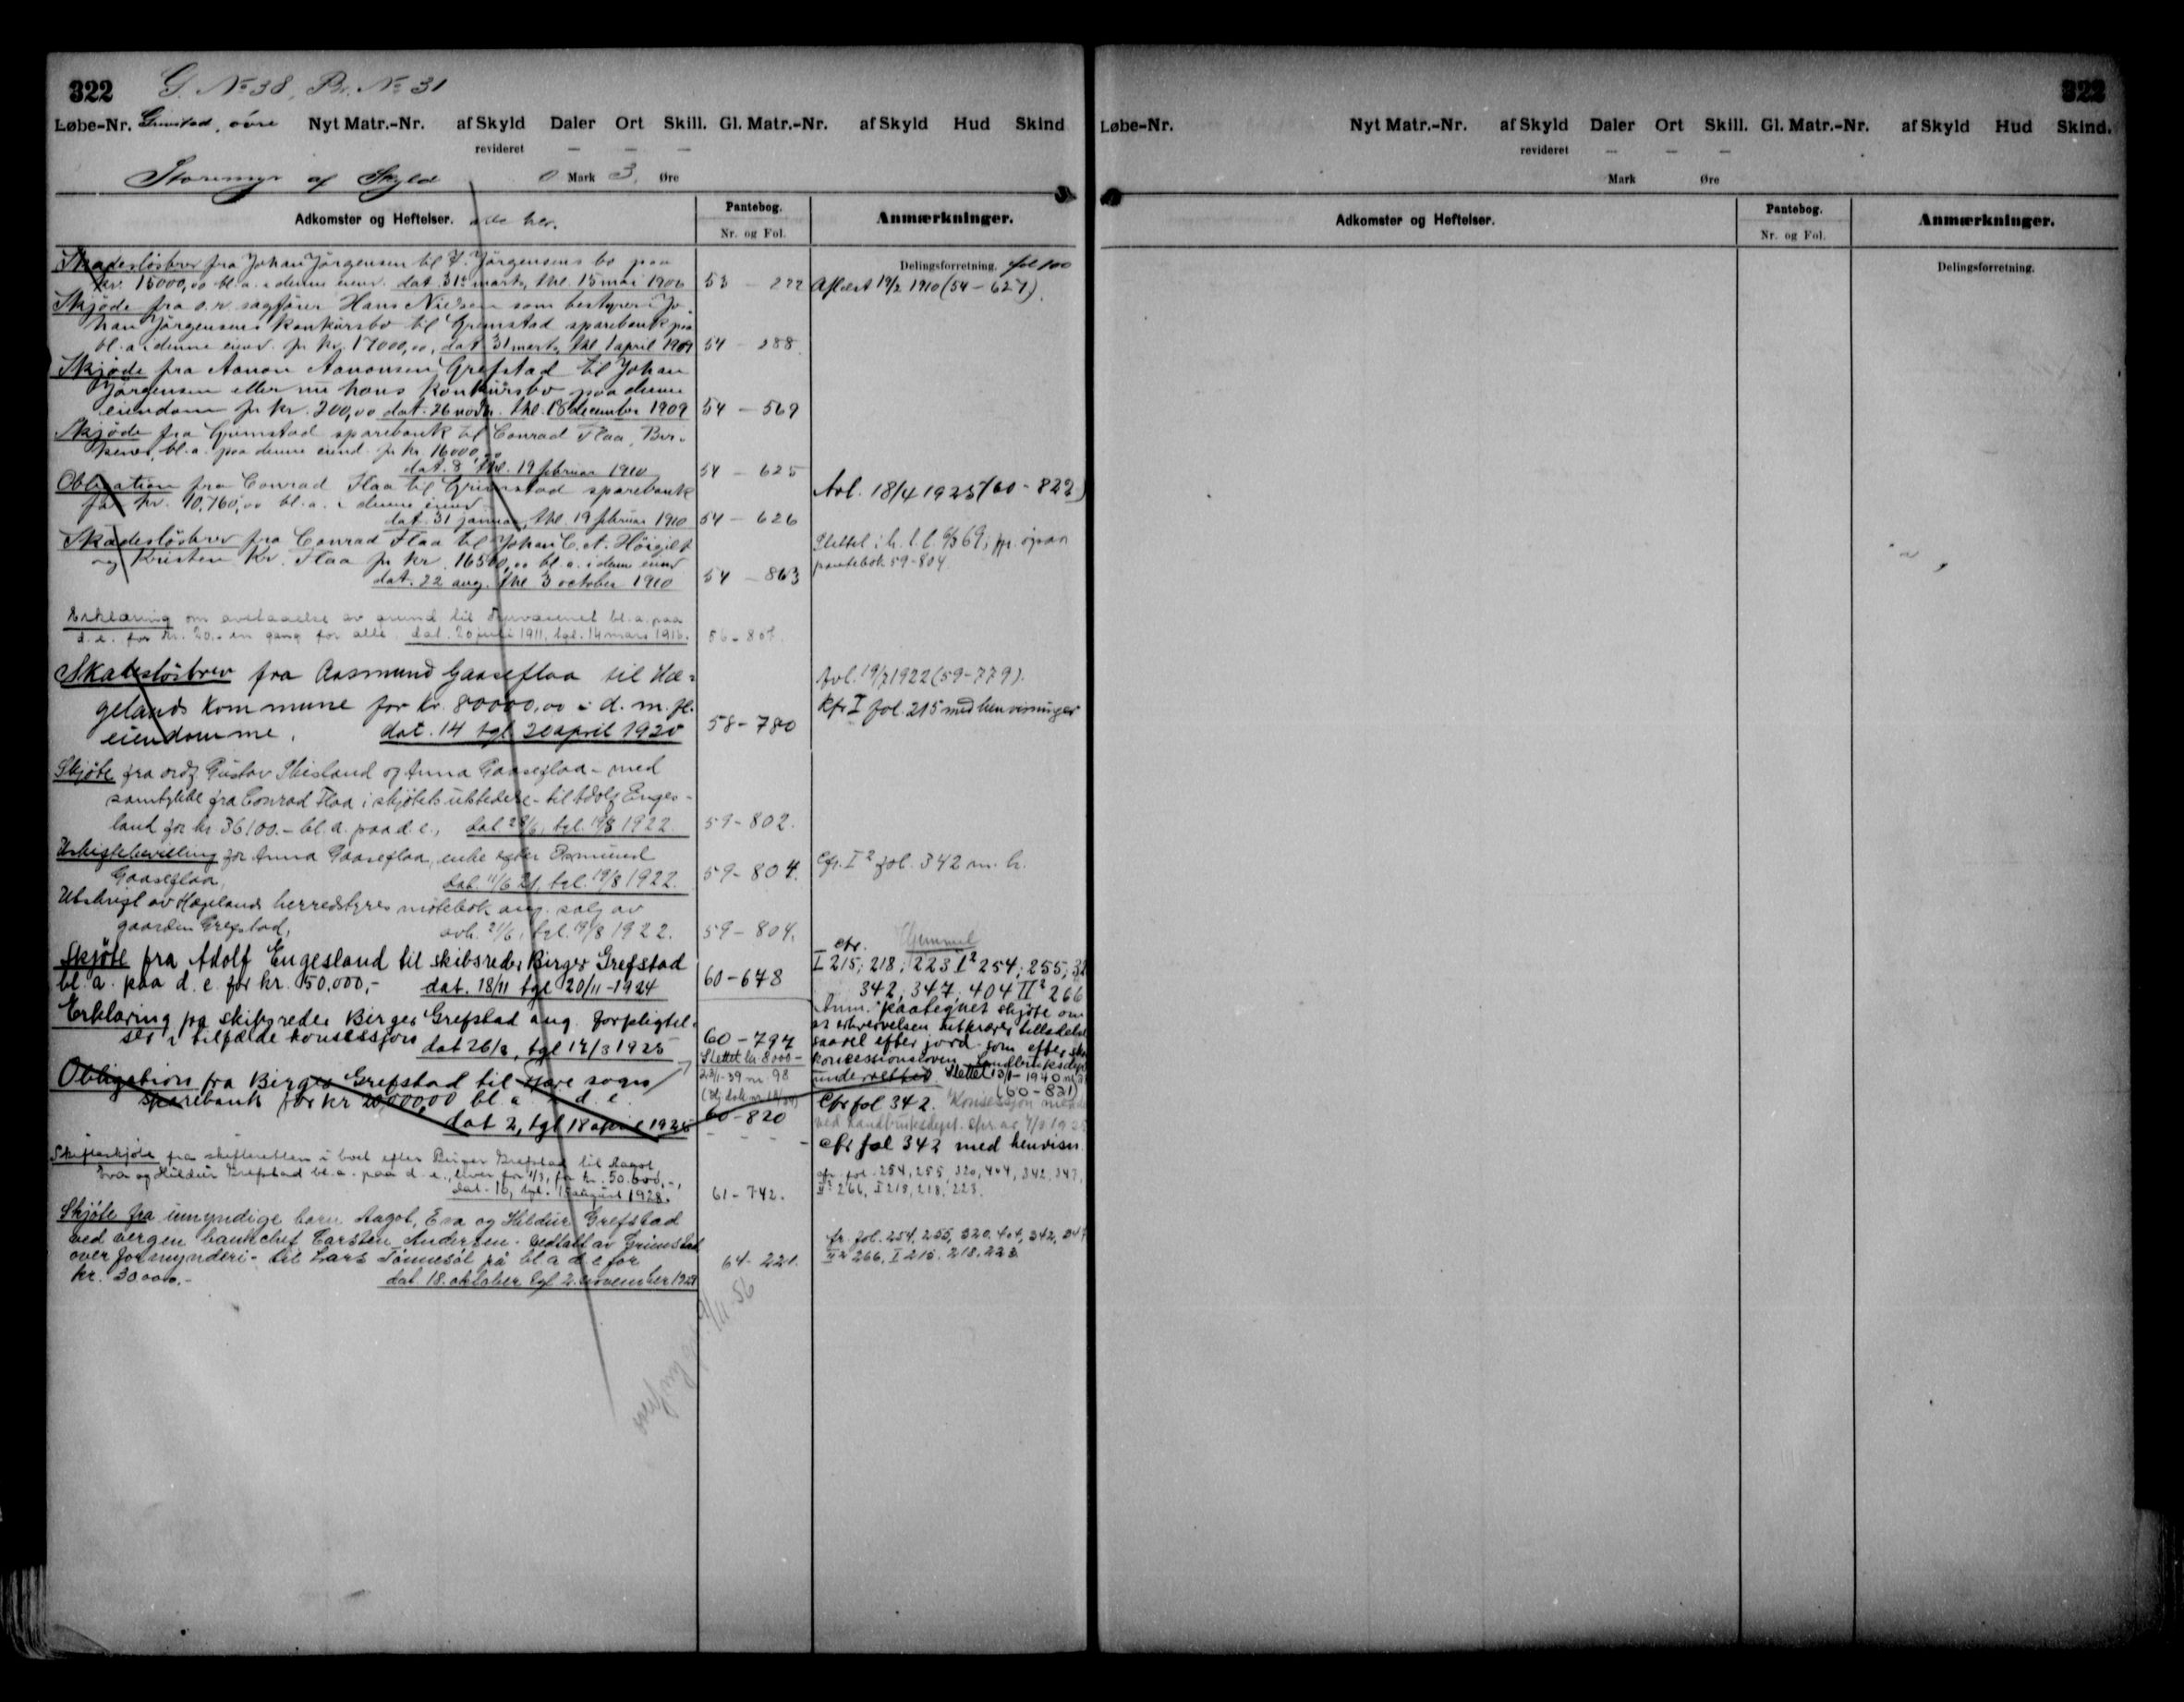 322 G. No 38, Br. No 31
Løbe-Nr. Grimstad, øvre Nyt Matr.-Nr. af Skyld Daler Ort Skill. Gl. Matr.-Nr. af Skyld Hud Skind
revideret — — —
Storemyr af Skyld 0 Mark 3 Øre
Adkomster og Heftelser.
Pantebog.
Nr. og Fol.
Anmærkninger.
Delingsforretning. fol 100
Skadesløsbrev fra Johan Jørgensen til J. Jørgensens bo paa
kr. 15000,00 bl. a. i denne eiend. dat. 31te marts, thl. 15 mai 1906 53 — 222 Aflæst 19/2 1910 (54 — 627).
Skjøde fra o.r. sagfører Hans Nielsen som bestyrer i Jo-
han Jørgensens konkursbo til Grimstad sparebank paa
bl. a. i denne eiend. for kr. 17000,00, dat. 31 marts, thl. 1 april 1909 54 — 288
Skjøde fra Aanon Aanonsen Grefstad til Johan
Jørgensen eller nu hans konkursbo paa denne
eiendom for kr. 200,00 dat. 26 novbr. thl. 18 december 1909 54 — 569
Skjøde fra Grimstad sparebank til Conrad Flaa, Bir-
kenes, bl. a. paa denne eiend. for kr. 16000,00
dat. 8 thl. 19 februar 1910 54 — 625
Obligation fra Conrad Flaa til Grimstad sparebank
for kr. 10,760,00 bl. a. i denne eiend.
dat. 31 januar, thl. 19 februar 1910 54 — 626
Avl. 18/4 1925 (60 - 822)
Skadesløsbrev fra Conrad Flaa til Johan C. A. Høigilt
og Kristen Kr. Flaa for kr. 16500,00 bl. a. i denne eiend
dat. 22 aug. thl. 3 october 1910 54 — 863
Slettet i h. t. l. § 69; jfr. også
pantebok 59-804
Erklæring om avstaaelse av grund til veivæsenet bl. a. paa
d. e. for kr. 20,- en gang for alle. dat. 20 juli 1911, tgl. 14 mars 1916. 56-807
Skadesløsbrev fra Aasmund Gaaseflaa til Hæ-
gelands kommune for kr. 80000,00 i d. m. fl.
eiendomme. dat. 14 tgl 20 april 1920 58-780
Avl. 19/7 1922 (59-779).
Kfr I fol. 215 med henvisninger
Skjøte fra ordf. Gustav Skisland og Anna Gaaseflaa - med
samtykke fra Conrad Flaa i skjøtets utstedelse - til Adolf Enges-
land for kr. 36100.- bl. a. paa d. e., dat 28/6, tgl. 19/8 1922. 59-802.
Uskiftebevilling for Anna Gaaseflaa, enke efter Osmund
Gaaseflaa, dat. 11/6 21, tgl. 19/8 1922. 59-804. Cfr. I2 fol. 342 m. h.
Utskrift av Hægelands herredstyres møtebok ang. salg av
gaarden Grefstad, avh. 21/6, tgl. 19/8 1922. 59-804.
Skjøte fra Adolf Engesland til skibsreder Birger Grefstad
bl. a. paa d. e. for kr. 50.000,- dat. 18/11 tgl 20/11-1924 60-678
cfr. Hjemmel
I 215; 218; 223 I2 254; 255; 32
342; 347; 404 II2 266
Erklæring fra skibsreder Birger Grefstad ang. forpligtel-
ser i tilfælde konsession dat 26/2, tgl 14/3 1925 60-794
Anm. paategnet skjøte om
at erhvervelsen utkræver tilladelse
saavel efter jord- som efter
koncessionsloven. Landbruksdept.
underrettet. Slettet 13/1-1940
Obligation fra Birger Grefstad til Fjære sogns
sparebank for kr 20000,00 bl a i d. e.
dat 2, tgl 18 april 1925 60-820
Slettet kr. 8000-
23/1-39 nr. 98
(60-821)
Cfr fol 342. Konsession
ved Landbruksdept.
cfr fol 342 med henvisn.
Skifteskjøte fra skifteretten i boet efter Birger Grefstad til Aagot,
Eva og Hildur Grefstad bl. a. paa d. e., hver for 1/3, for kr. 50.000,-,
dat. 10, tgl. 15 august 1928. 61-742.
cfr. fol. 254, 255, 320, 404, 342, 347,
II2 266, I 215, 218, 223.
Skjøte fra umyndige barn Aagot, Eva og Hildur Grefstad
ved vergen banksjef Carsten Andersen - vedtatt av Grimstad
overformynderi - til Lars Tønnesøl på bl a d e for
kr. 30000.- dat 18. oktober tgl 2. november 1929 64-221.
cfr fol. 254, 255, 320, 404, 342, 347
II2 266, I 215, 218, 223
9/11-56
323
Løbe-Nr. Nyt Matr.-Nr. af Skyld Daler Ort Skill. Gl. Matr.-Nr. af Skyld Hud Skind.
revideret — — —
Mark Øre
Adkomster og Heftelser.
Pantebog.
Nr. og Fol.
Anmærkninger.
Delingsforretning.